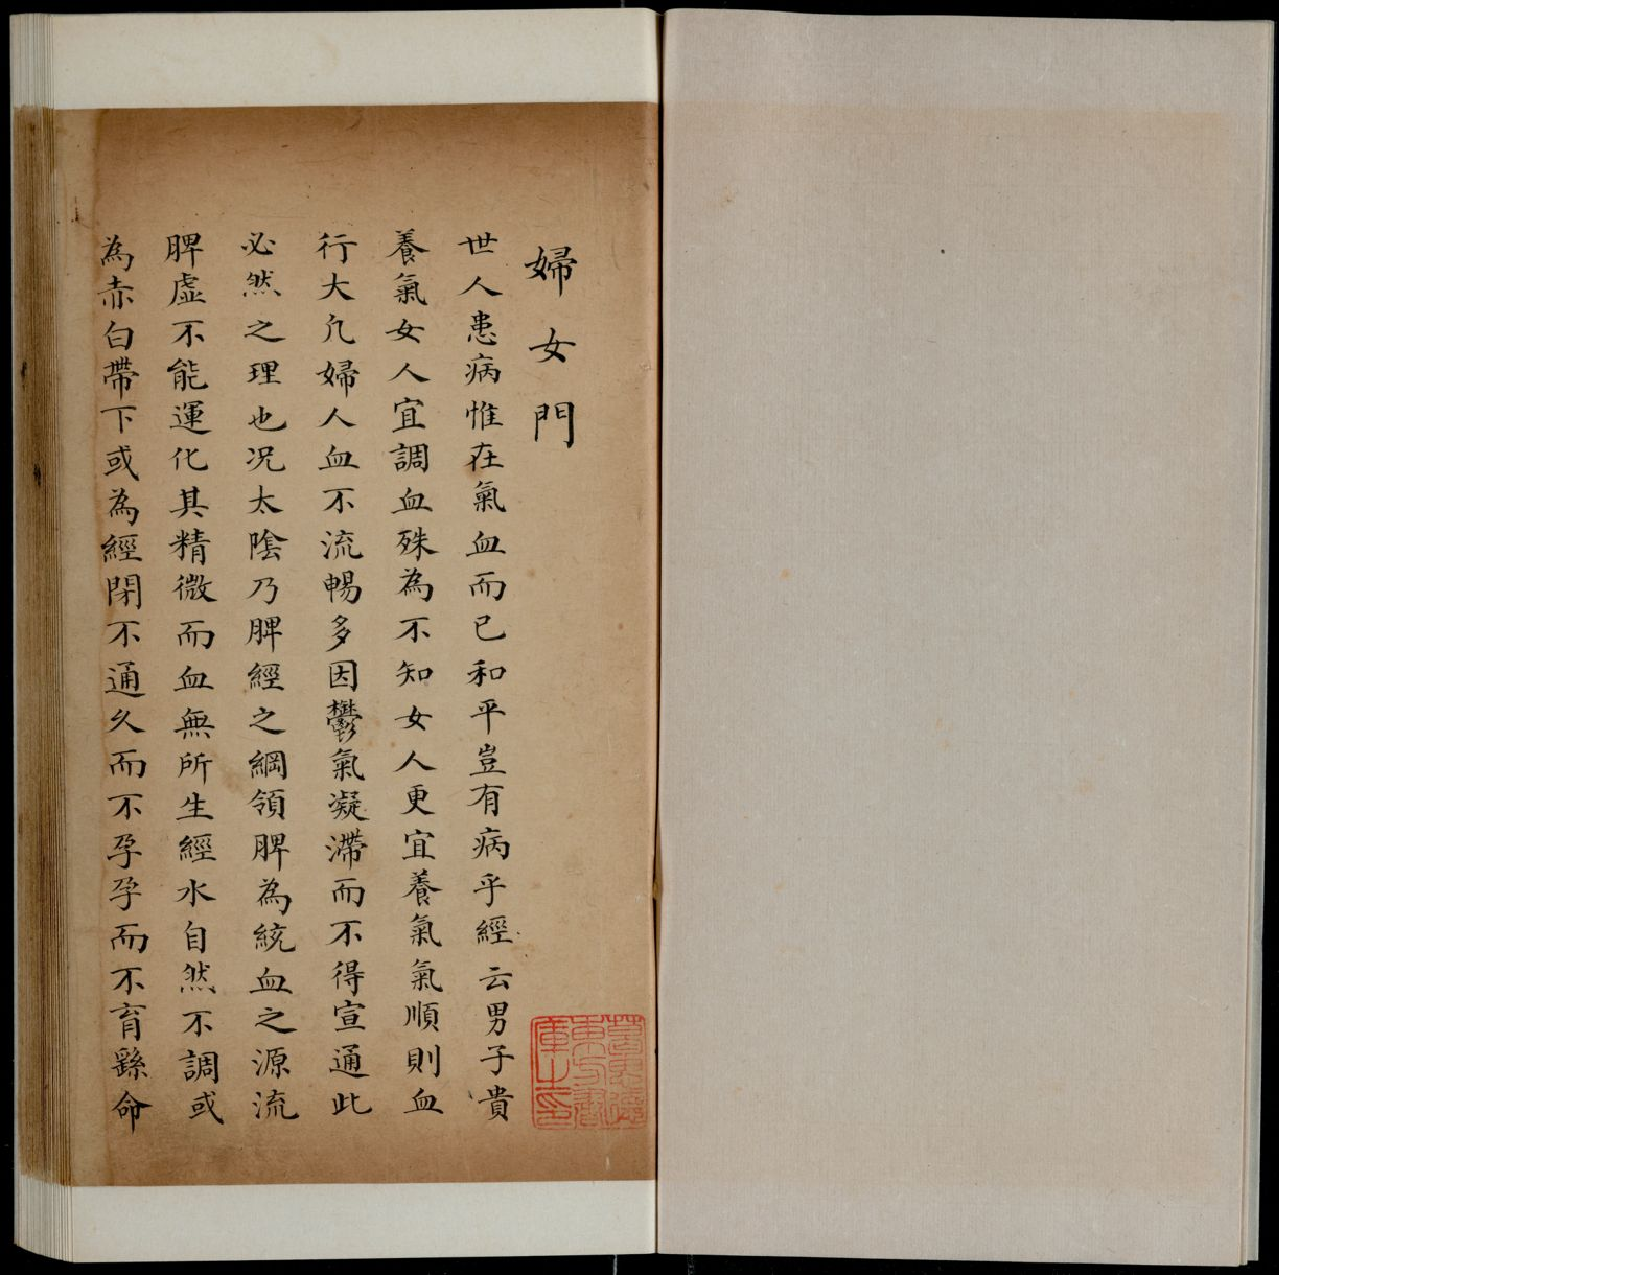 婦女門
世人患病惟在氣血而已和平豈有病乎經云男子貴
養氣女人宜調血殊為不知女人更宜養氣氣順則血
行大凢婦人血不流暢多因鬱氣凝滯而不得宣通此
必然之理也况太陰乃脾經之綱領脾為統血之源流
脾虛不能運化其精微而血無所生經水自然不調或
為赤白帶下或為經閉不通久而不孕孕而不育繇命